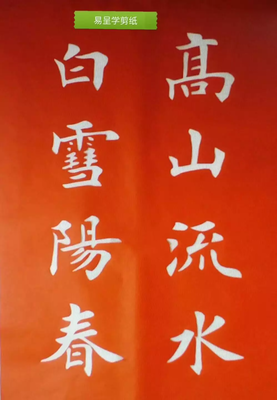 易呈学剪纸
髙山流水
白雪陽春